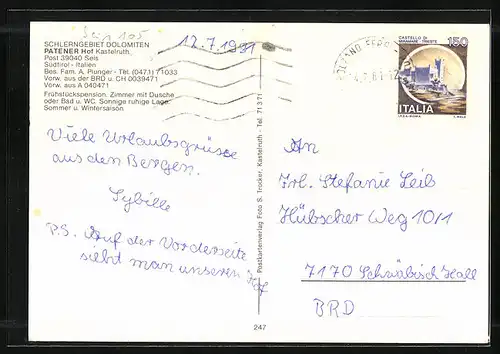 Seis 105
SCHLERNGEBIET DOLOMITEN
PATENER Hof Kastelruth.
Post 39040 Seis
Südtirol - Italien
Bes. Fam. A. Plunger - Tel. (0471) 71033
Vorw. aus der BRD u. CH 0039471
Vorw. aus A 040471
Frühstückspension. Zimmer mit Dusche
oder Bad u. WC. Sonnige ruhige Lage.
Sommer u. Wintersaison
12.7.1981
Viele Urlaubsgrüsse
aus den Bergen.
Sybille
P.S. Auf der Vorderseite
sieht man unseren Hof
Postkartenverlag Foto S. Trocker, Kastelruth - Tel. 71371
247
CASTELLO DI
MIRAMARE - TRIESTE
150
ITALIA
An
Frl. Stefanie Leib
Hübscher Weg 10/1
7170 Schwäbisch Hall
BRD